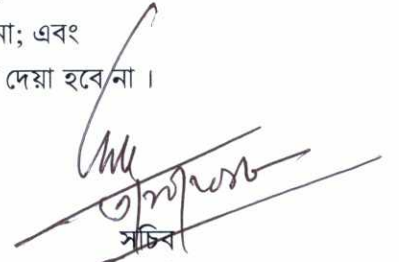 না; এবং
দেয়া হবে না ।
সচিব